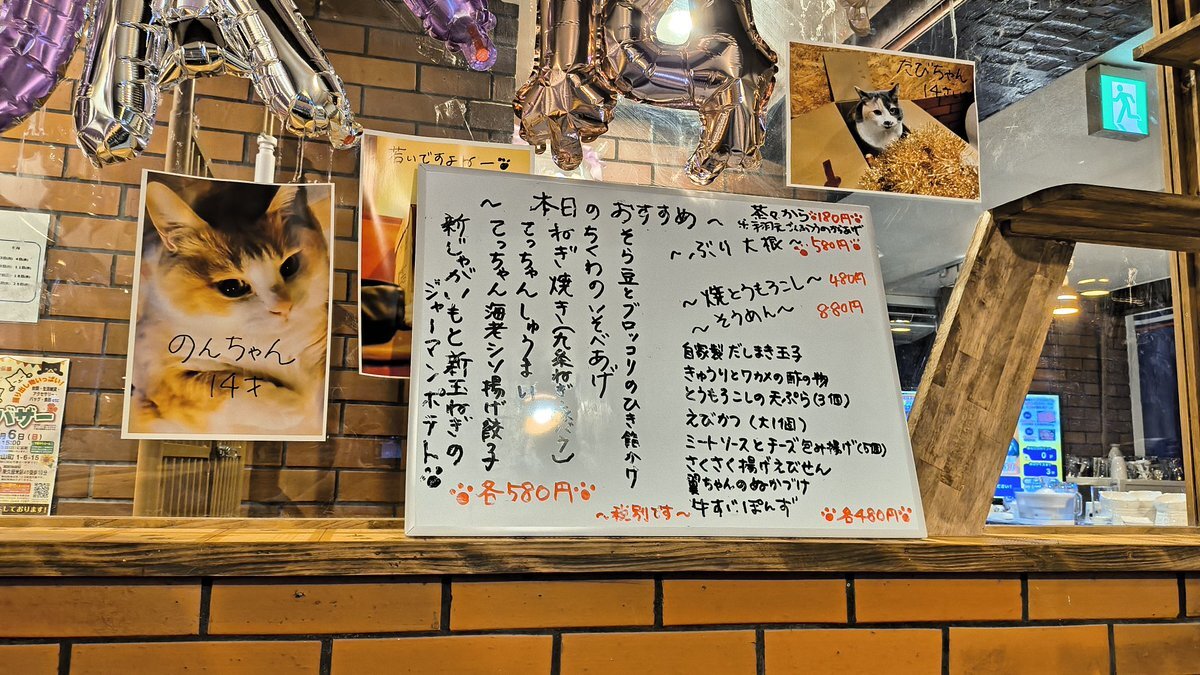 たびちゃん
14才
若いですよー
のんちゃん
14才
〜本日のおすすめ〜
そら豆とブロッコリのひき餡かけ
ちくわのいそべあげ
ねぎ焼き(九条ねぎ
てっちゃんしゅうまい
てっちゃん海老シソ揚げ餃子
新じゃがいもと新玉ねぎの
ジャーマンポテト
各580円
茶々から180円
〜ぶり大根〜580円
〜焼とうもろこし〜480円
〜そうめん〜880円
自家製だしまき玉子
きゅうりとワカメの酢の物
とうもろこしの天ぷら(3個)
えびかつ(大1個)
ミートソースとチーズ包み揚げ(5個)
さくさく揚げえびせん
翼ちゃんのぬかづけ
牛すじぽんず
各480円
〜税別です〜
バザー
6日(日)
15:00
1-6-15
しております!